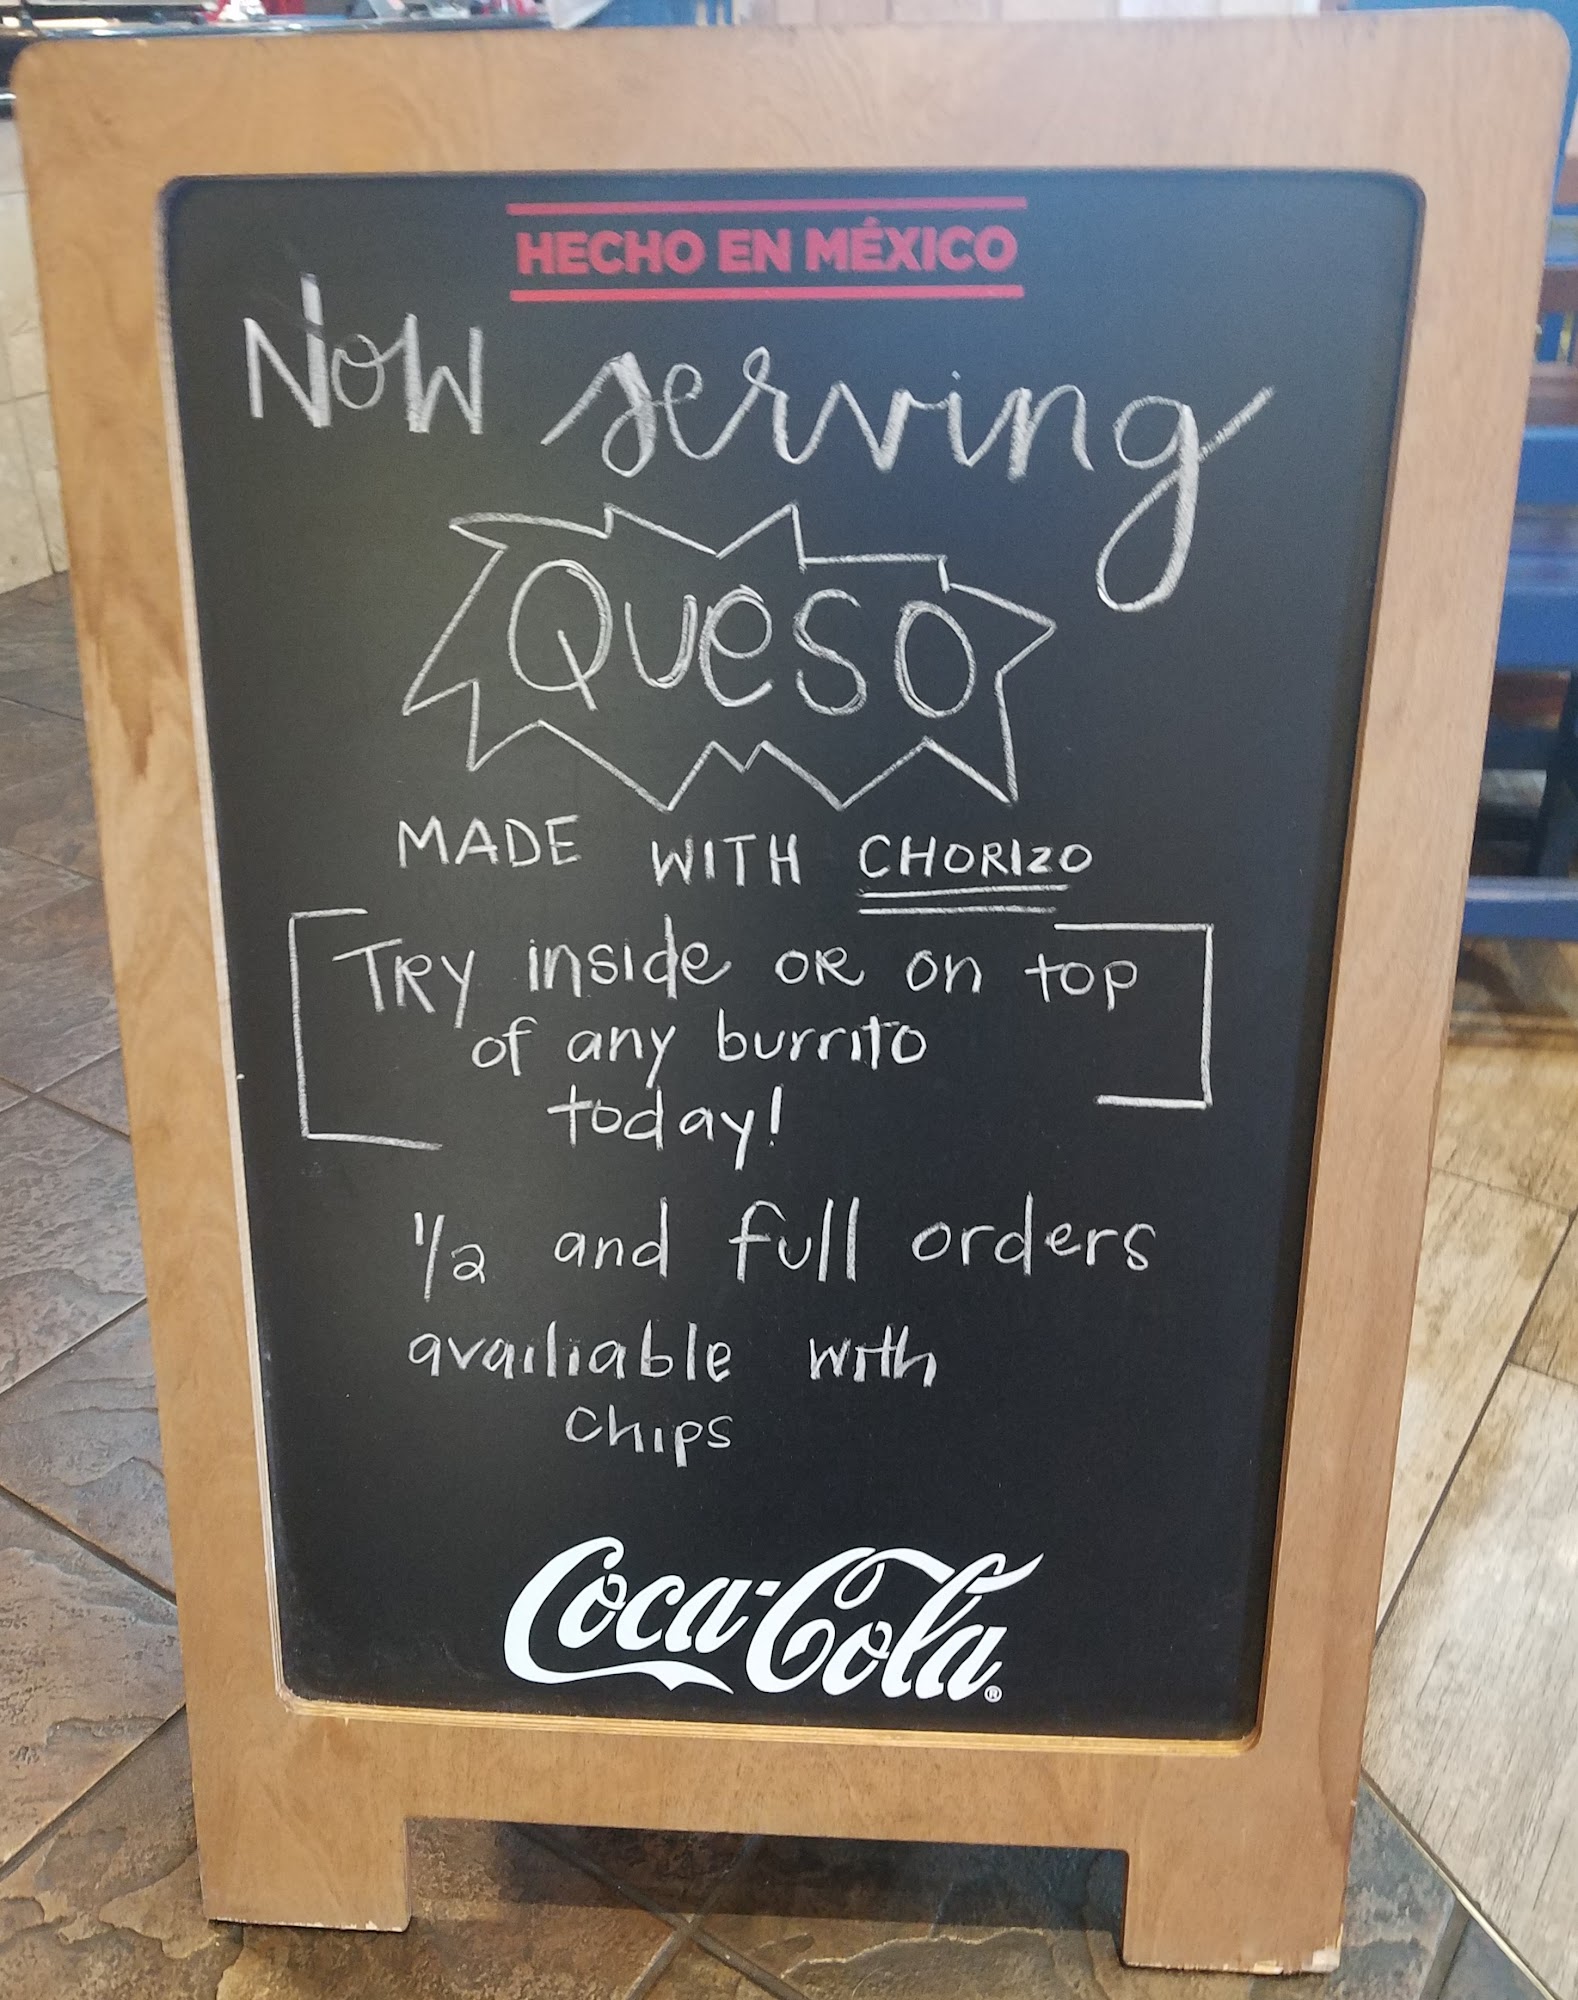 HECHO EN MÉXICO
Now serving
Queso
MADE WITH CHORIZO
TRY inside OR on top
of any burrito
today!
1/2 and full orders
availiable with
chips
Coca-Cola®